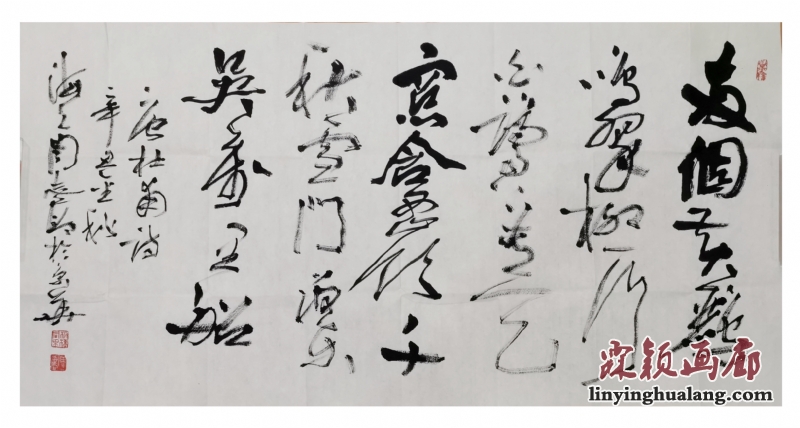 两個黄鹂
鳴翠柳一行
白鹭上青天
窓含西嶺千
秋雪門泊東
吴萬里船
唐杜甫诗
辛丑秋
海上周於京華
霖颖画廊
linyinghualang.com